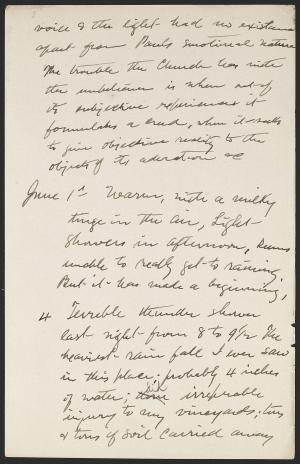 voice & the light had no existence
apart from Pauls emotional nature
The trouble the Church has with
the unbeliever is when out of
its subjective experiences it
formulates a creed, when it seeks
to give objective reality to the
objects of its adoration &c
June 1st Warm, with a milky
tinge in the air, Light
showers in afternoon, Seems
unable to really get to raining.
But it has made a beginning,
4 Terrible thunder shower
last night from 8 to 9 1/2 The
heaviest rain fall I ever saw
in this place; probably 4 inches
of water; did irreparable
injury to my vineyards; tons
& tons of soil carried away